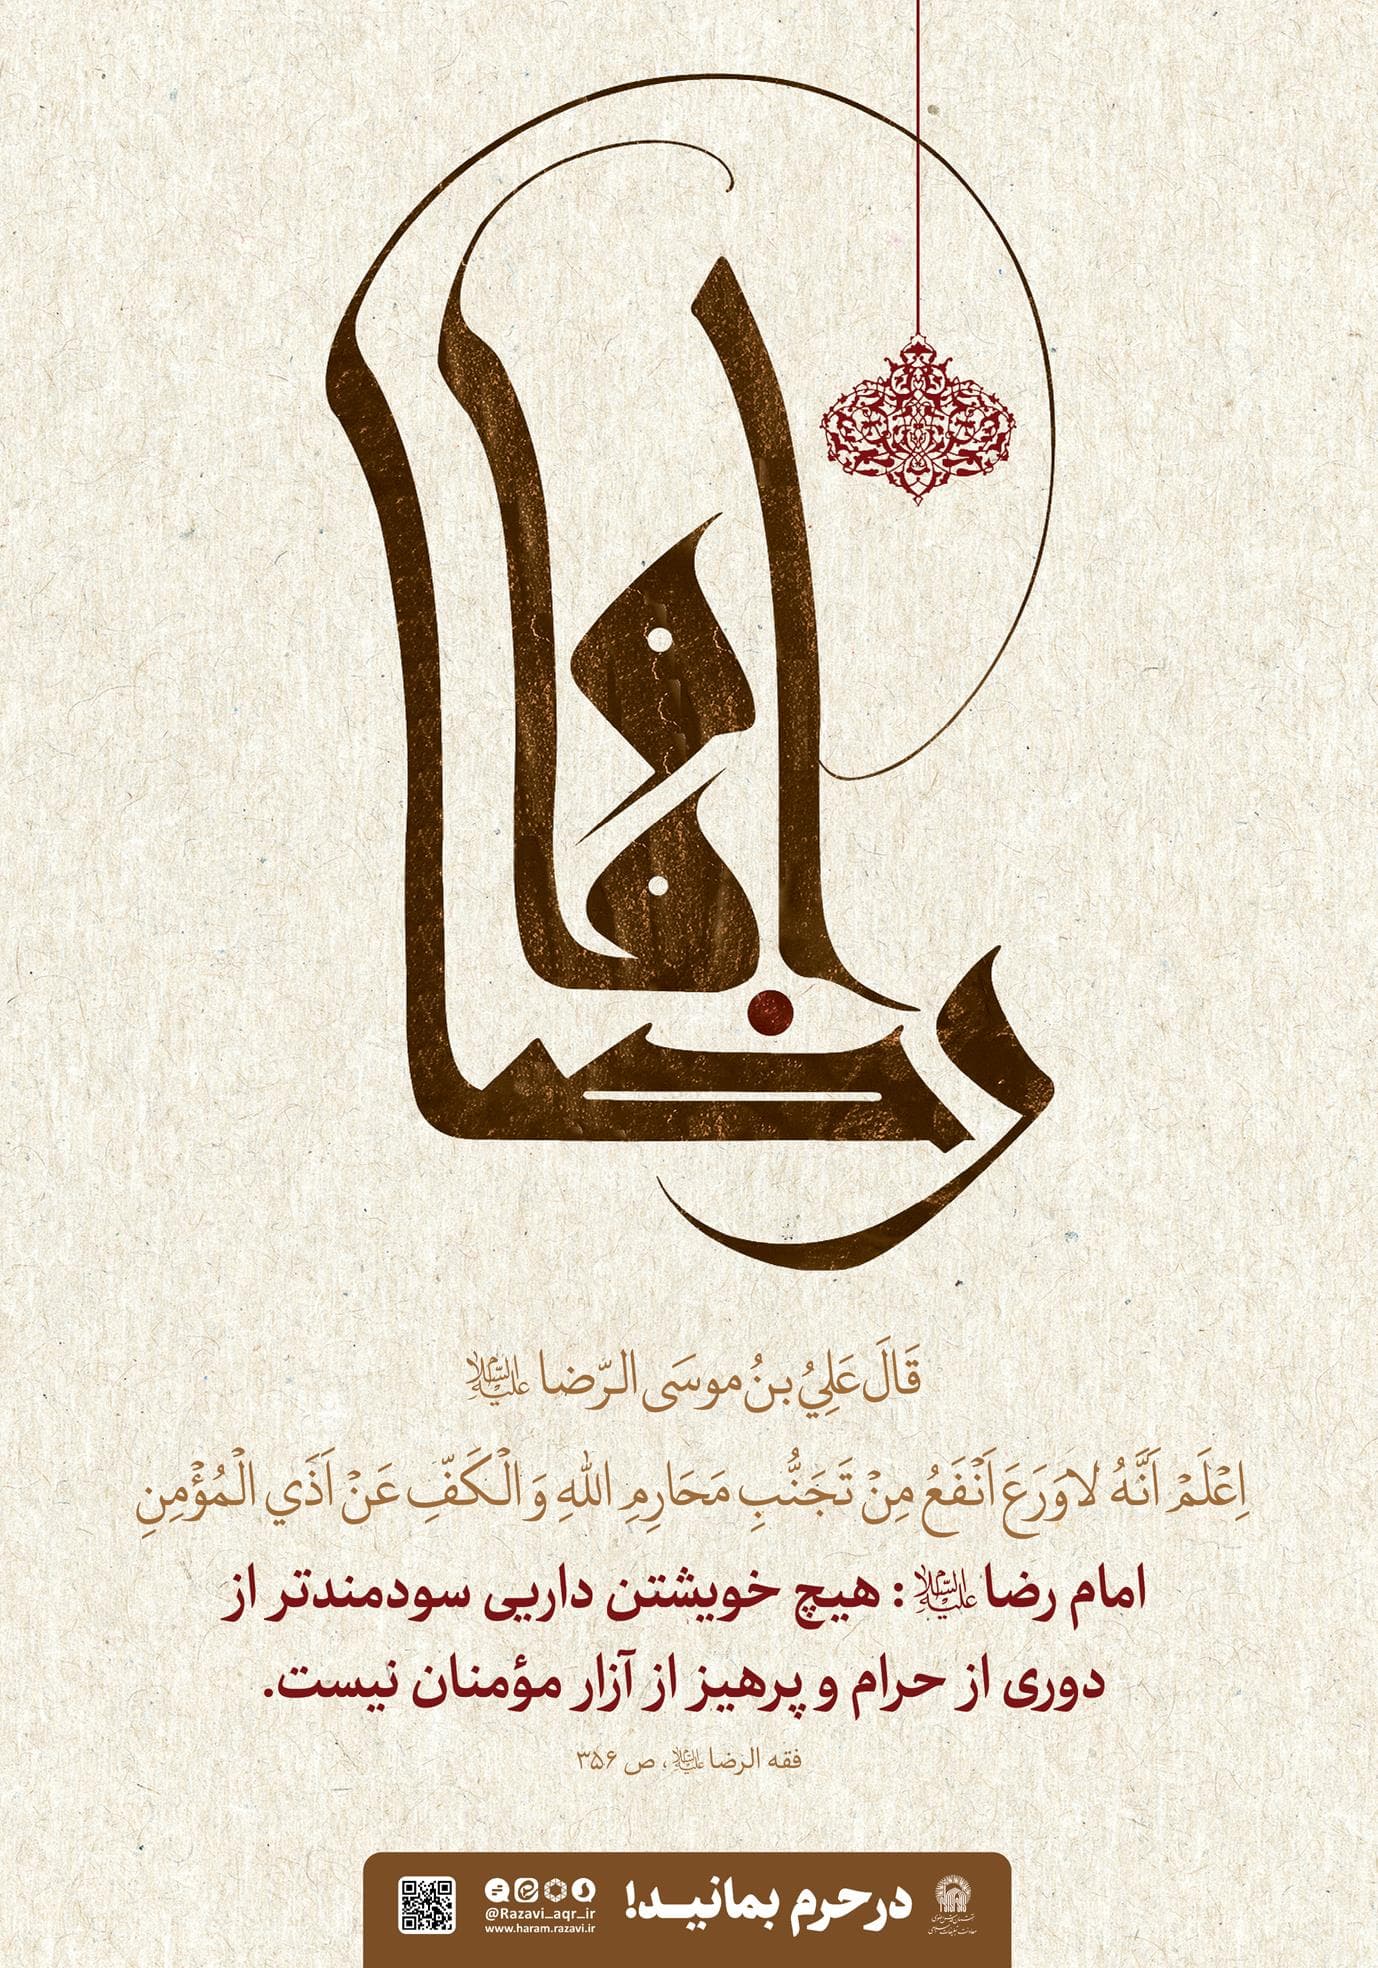 امام رضا
قَالَ عَلِيُ بنُ موسَى الرَّضا علیه‌السلام
اِعْلَمْ اَنَّهُ لاوَرَعَ اَنْفَعُ مِنْ تَجَنُّبِ مَحَارِمِ اللهِ وَ الْكَفِّ عَنْ اَذَي الْمُؤْمِنِ
امام رضا علیه‌السلام: هیچ خویشتن داریی سودمندتر از
دوری از حرام و پرهیز از آزار مؤمنان نیست.
فقه الرضا علیه‌السلام، ص ۳۵۶
درحرم بمانید!
@Razavi_aqr_ir
www.haram.razavi.ir